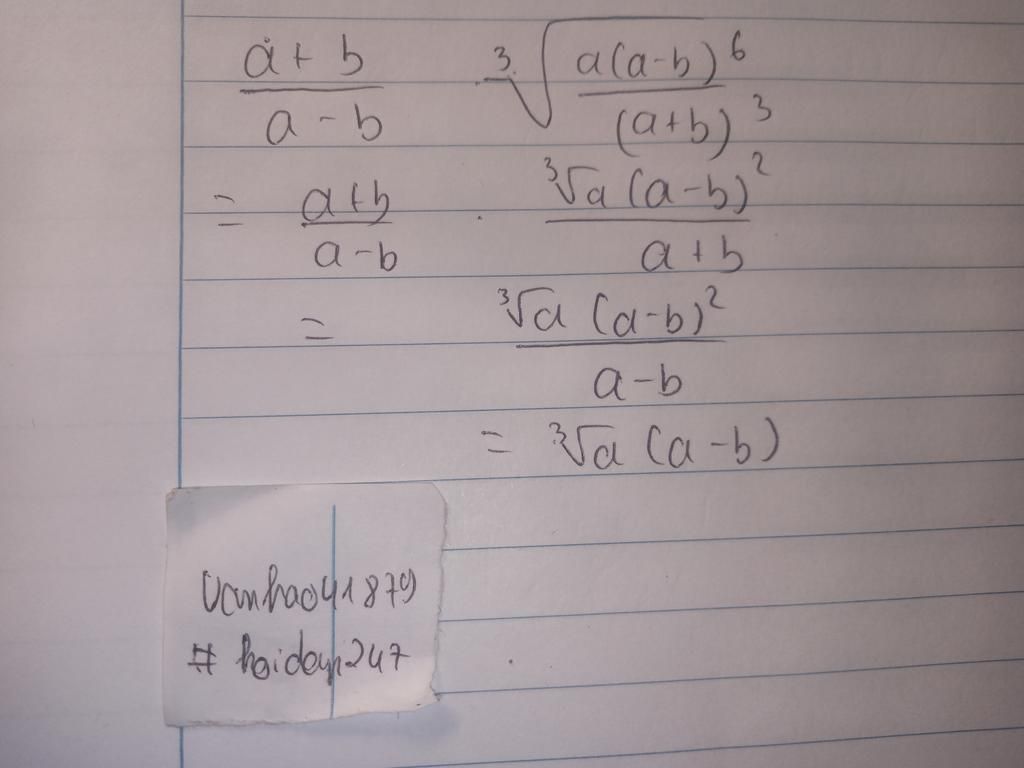 a + b / a - b · ∛(a(a-b)^6 / (a+b)^3)
= a+b / a-b · ∛a (a-b)^2 / a + b
= ∛a (a-b)^2 / a-b
= ∛a (a-b)
Vanhao41879
# hoidap247